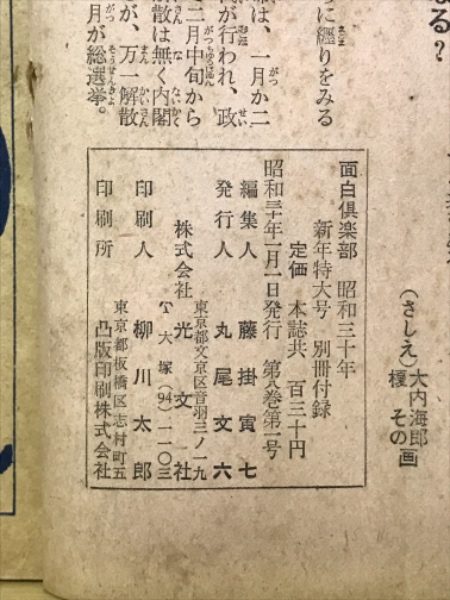 なる？
（さしえ）大内海郎
榎 その画
らに纒りをみる
は、一月か二
が行われ、政
二月中旬から
散は無く内閣
が、万一解散
月が総選挙。
面白倶楽部 昭和三十年
新年特大号 別冊付録
定価 本誌共 百三十円
昭和三十年一月一日発行 第八巻第一号
編集人 藤掛寅七
発行人 丸尾文六
東京都文京区音羽三ノ一九
株式会社 光文社
大塚（94）一一〇三
印刷人 柳川太郎
東京都板橋区志村町五
印刷所 凸版印刷株式会社